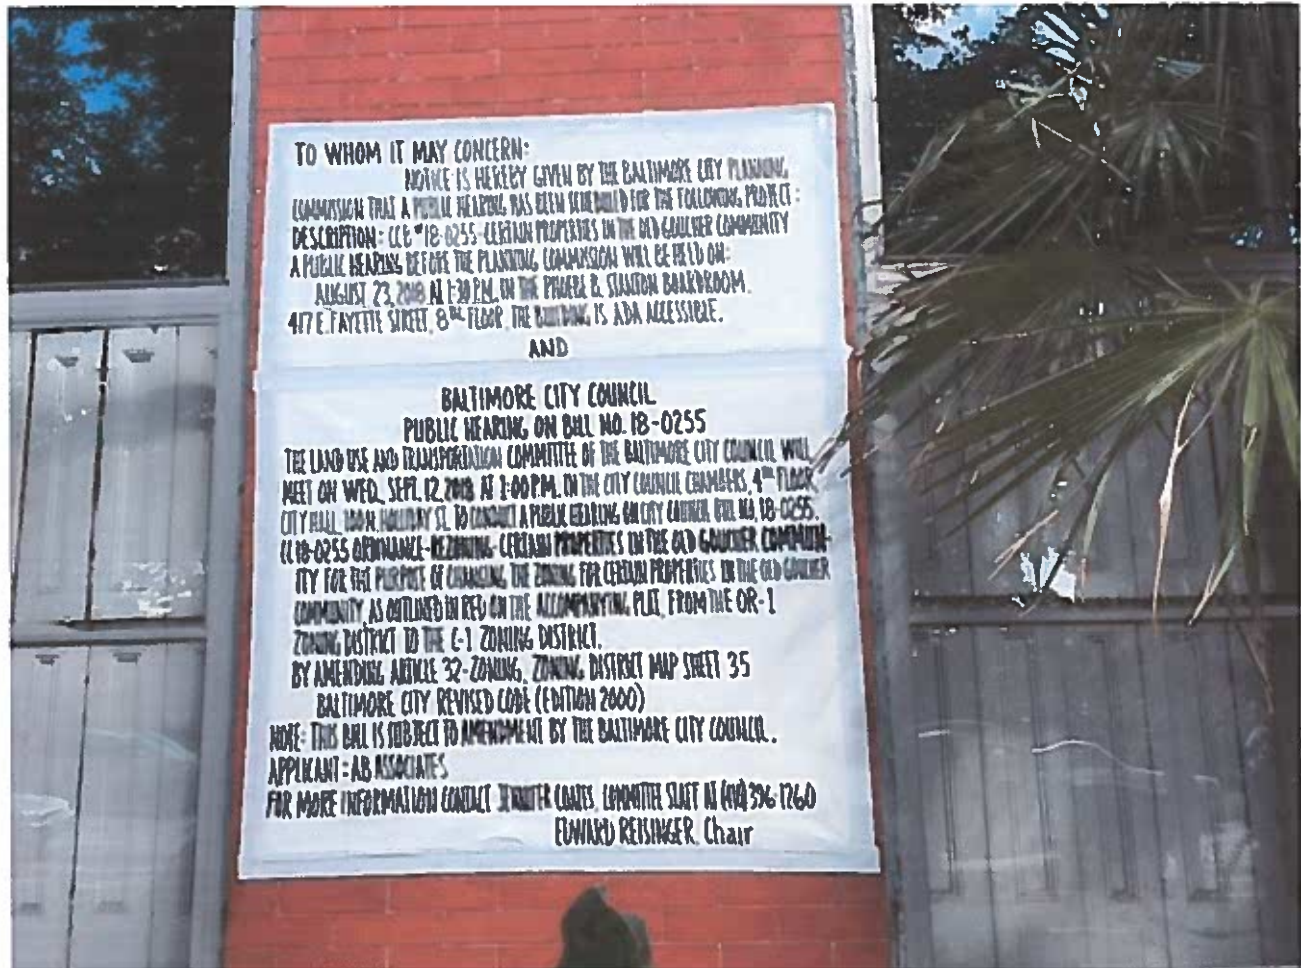 TO WHOM IT MAY CONCERN:
NOTICE IS HEREBY GIVEN BY THE BALTIMORE CITY PLANNING
COMMISSION THAT A PUBLIC HEARING HAS BEEN SCHEDULED FOR THE FOLLOWING PROJECT:
DESCRIPTION: CCB #18-0255-CERTAIN PROPERTIES IN THE OLD GOUCHER COMMUNITY
A PUBLIC HEARING BEFORE THE PLANNING COMMISSION WILL BE HELD ON:
AUGUST 23, 2018 AT 1:30 P.M. IN THE PHOEBE B. STANTON BOARDROOM.
417 E. FAYETTE STREET, 8TH FLOOR, THE BUILDING IS ADA ACCESSIBLE.
AND
BALTIMORE CITY COUNCIL
PUBLIC HEARING ON BILL NO. 18-0255
THE LAND USE AND TRANSPORTATION COMMITTEE OF THE BALTIMORE CITY COUNCIL WILL
MEET ON WED., SEPT. 12, 2018 AT 1:00 P.M. IN THE CITY COUNCIL CHAMBERS, 4TH FLOOR,
CITY HALL, 100 N. HOLLIDAY ST. TO CONDUCT A PUBLIC HEARING ON CITY COUNCIL BILL NO. 18-0255.
CC18-0255 ORDINANCE-REZONING-CERTAIN PROPERTIES IN THE OLD GOUCHER COMMUN-
ITY FOR THE PURPOSE OF CHANGING THE ZONING FOR CERTAIN PROPERTIES IN THE OLD GOUCHER
COMMUNITY, AS OUTLINED IN RED ON THE ACCOMPANYING PLAT, FROM THE OR-1
ZONING DISTRICT TO THE C-1 ZONING DISTRICT.
BY AMENDING ARTICLE 32-ZONING, ZONING DISTRICT MAP SHEET 35
BALTIMORE CITY REVISED CODE (EDITION 2000)
NOTE: THIS BILL IS SUBJECT TO AMENDMENT BY THE BALTIMORE CITY COUNCIL.
APPLICANT: AB ASSOCIATES
FOR MORE INFORMATION CONTACT JENNIFER COATES, COMMITTEE STAFF AT (410) 396-1260
EDWARD REISINGER, Chair